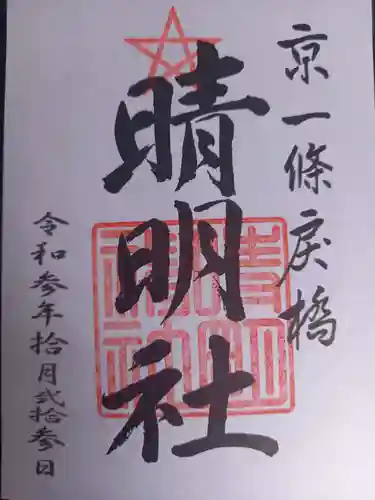 京一條戻橋
晴明社
令和参年拾月弐拾参日